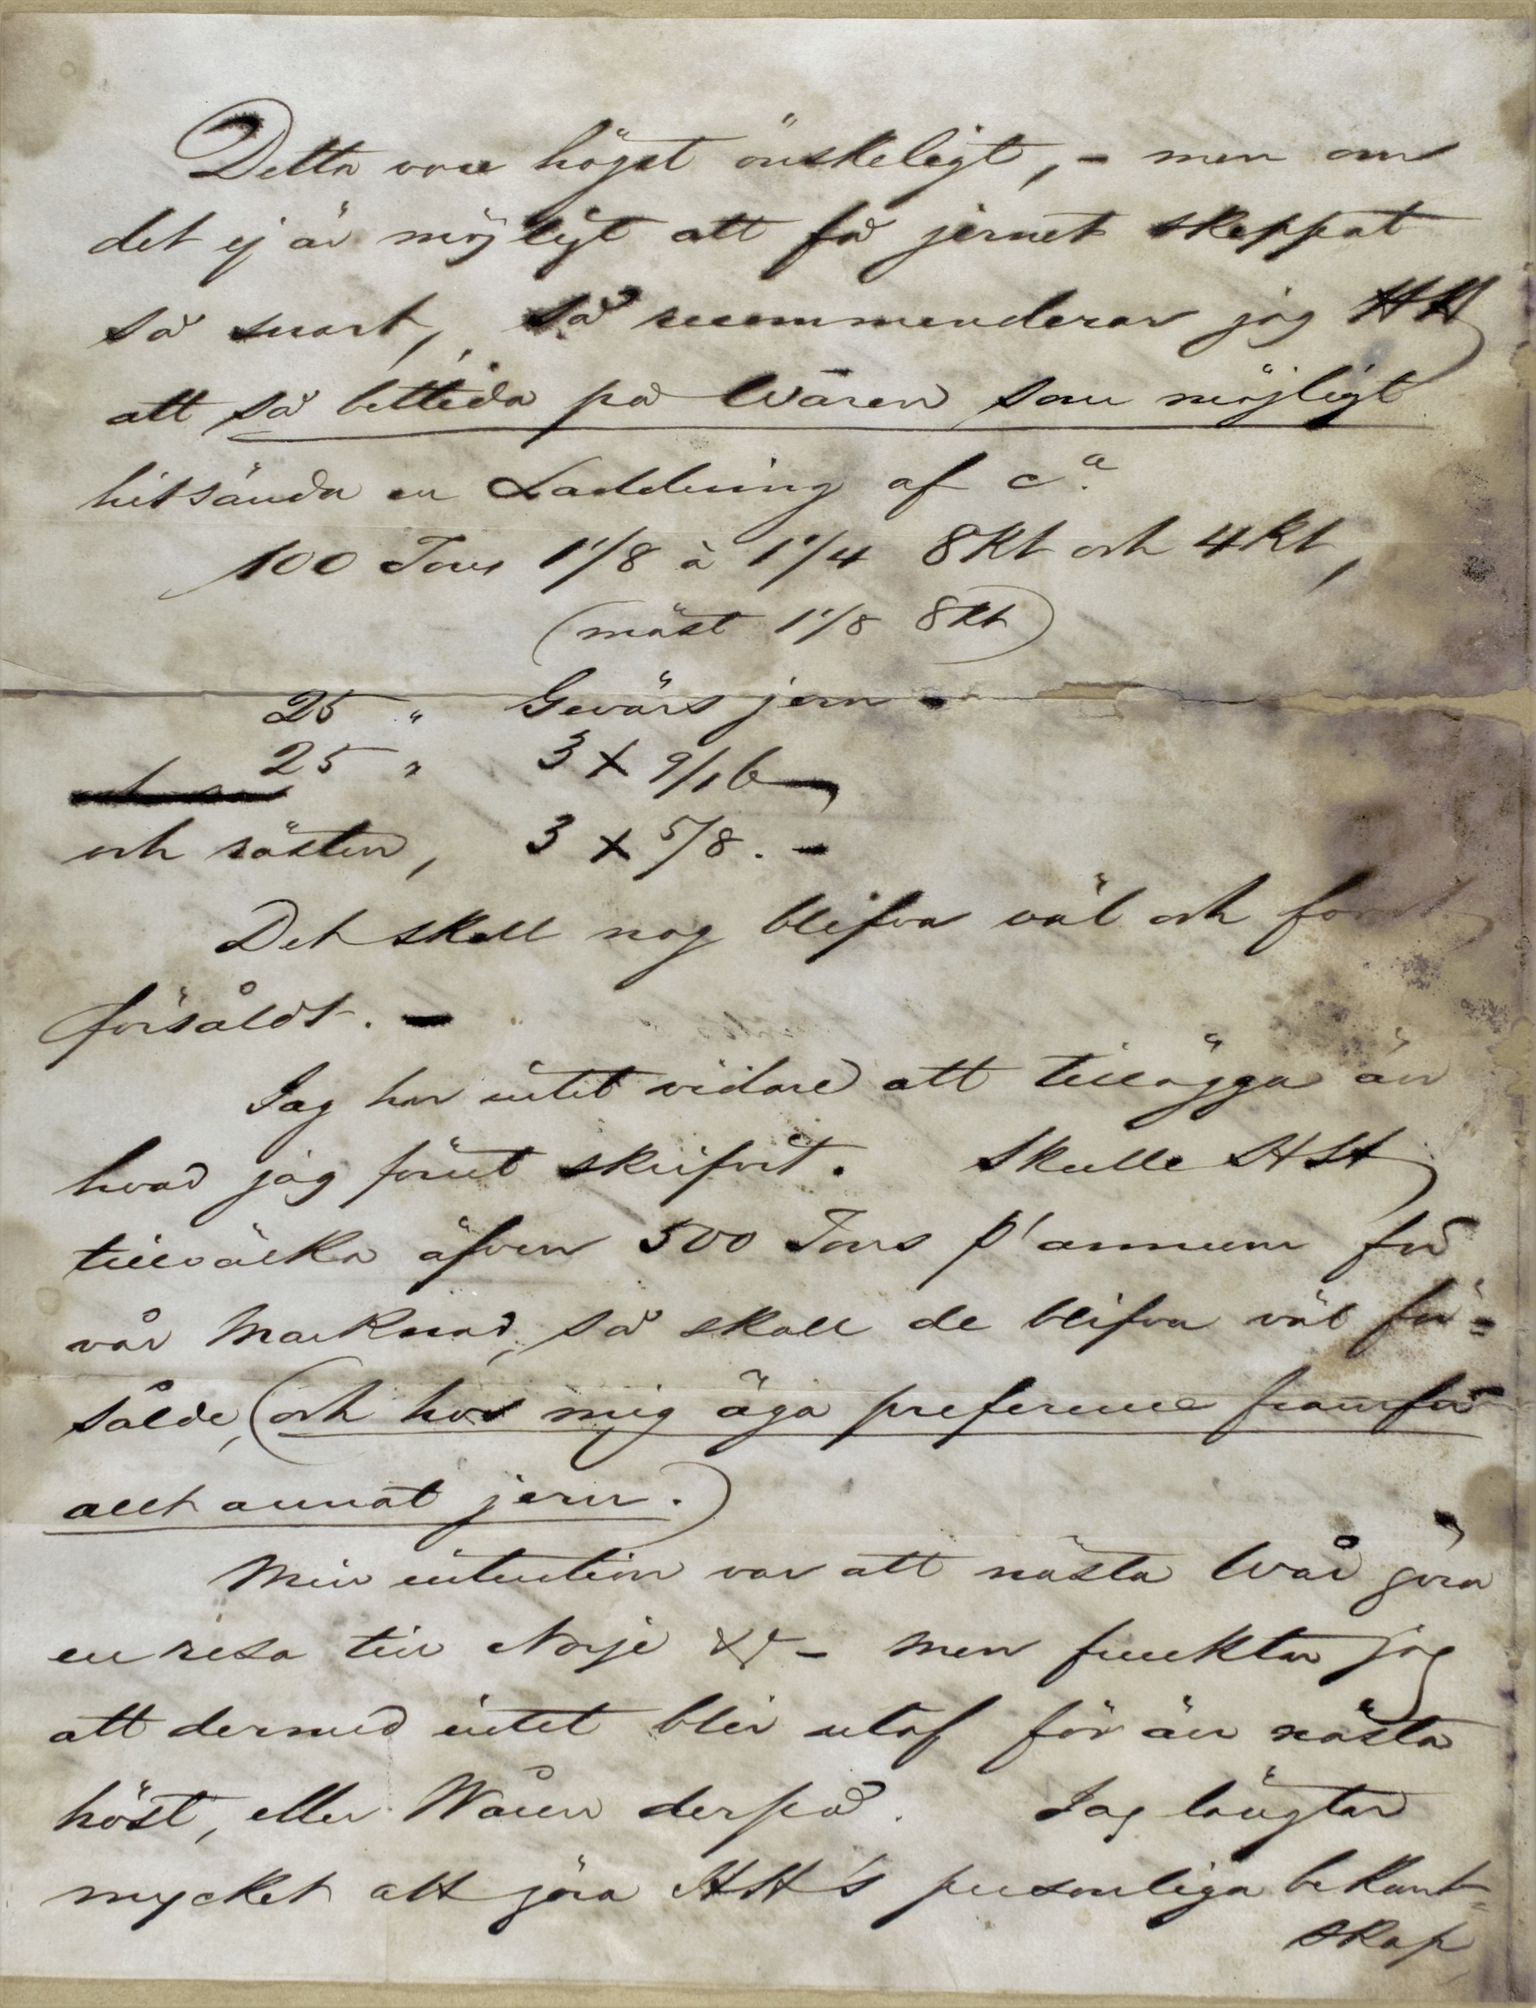 Detta vore högst önskeligt, - men om
det ej är möjligt att få jernet skeppat
så snart, så recommenderar jag HH
att så bittida på Våren som möjligt
hitsända en Laddning af cª.
100 Tons 1 1/8 à 1 1/4 8kt och 4kt,
(mäst 1 1/8 8kt)
25 " Gevärs jern -
25 " 3 x 9/16 -
och rästen, 3 x 5/8. -
Det skall nog blifva väl och
försåldt. -
Jag har intet vidare att tillägga än
hvad jag förut skrifvit. Skulle HH
tillvälka äfven 500 Tons p' annum för
vår Marknad, så skall de blifva väl för=
sålde, (och hos mig äga preference framför
allt annat jern.)
Min intention var att nästa Vår göra
en resa till Norje & - men fruktar jag
att dermed intet blir utaf för än nästa
höst, eller Våren derpå. Jag längtar
mycket att göra HH's personliga bekant=
skap